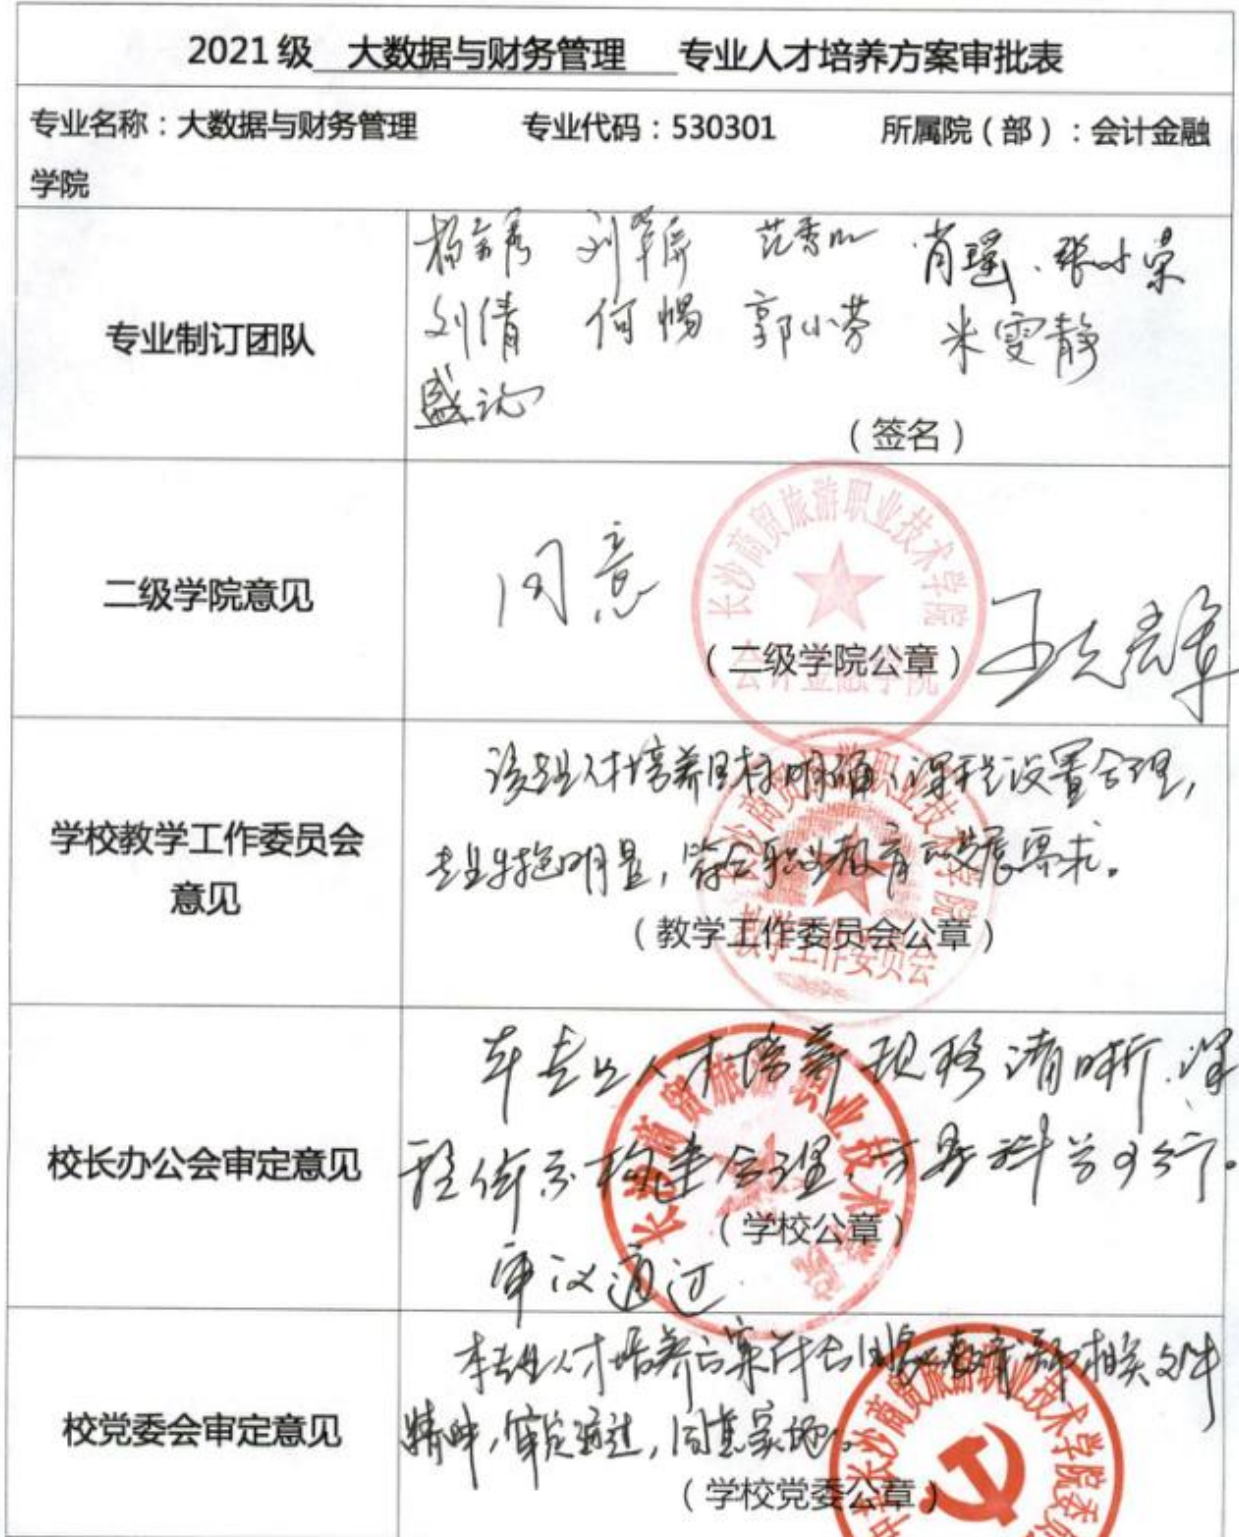 2021级 大数据与财务管理 专业人才培养方案审批表
专业名称：大数据与财务管理 专业代码：530301 所属院（部）：会计金融
学院
专业制订团队
肖瑶 张小荣
刘倩 何惕 郭小芳 米雯静
（签名）
二级学院意见
同意
长沙商贸旅游职业技术学院
会计金融学院
（二级学院公章）
学校教学工作委员会
意见
该专业人才培养目标明确，课程设置合理，
专业特色明显，符合职业教育发展需求。
长沙商贸旅游职业技术学院
教学工作委员会
（教学工作委员会公章）
校长办公会审定意见
本专业人才培养规格清晰，课
程体系构建合理，方案科学可行。
审议通过
长沙商贸旅游职业技术学院
（学校公章）
校党委会审定意见
本专业人才培养方案符合国家教育部相关文件
精神，审定通过，同意实施。
（学校党委公章）
中共长沙商贸旅游职业技术学院委员